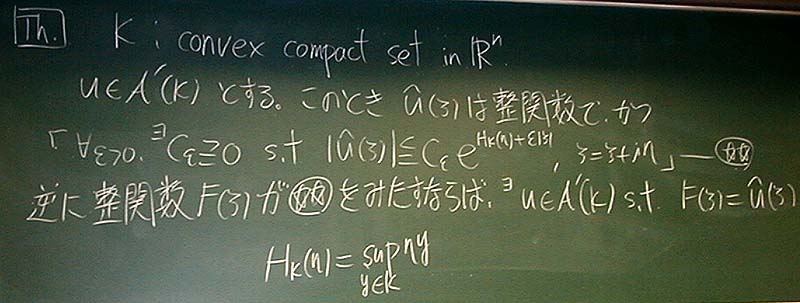 Th. K : convex compact set in ℝⁿ.
u∈A'(K) とする。このとき û(ζ)は整関数で、かつ
「∀ε>0, ∃Cε≧0 s.t |û(ζ)|≦Cε e^{H_K(η)+ε|ζ|}, ζ=ξ+iη」—☆☆
逆に整関数F(ζ)が☆☆をみたすならば、∃u∈A'(K) s.t. F(ζ)=û(ζ)
H_K(η)= sup_{y∈K} ηy